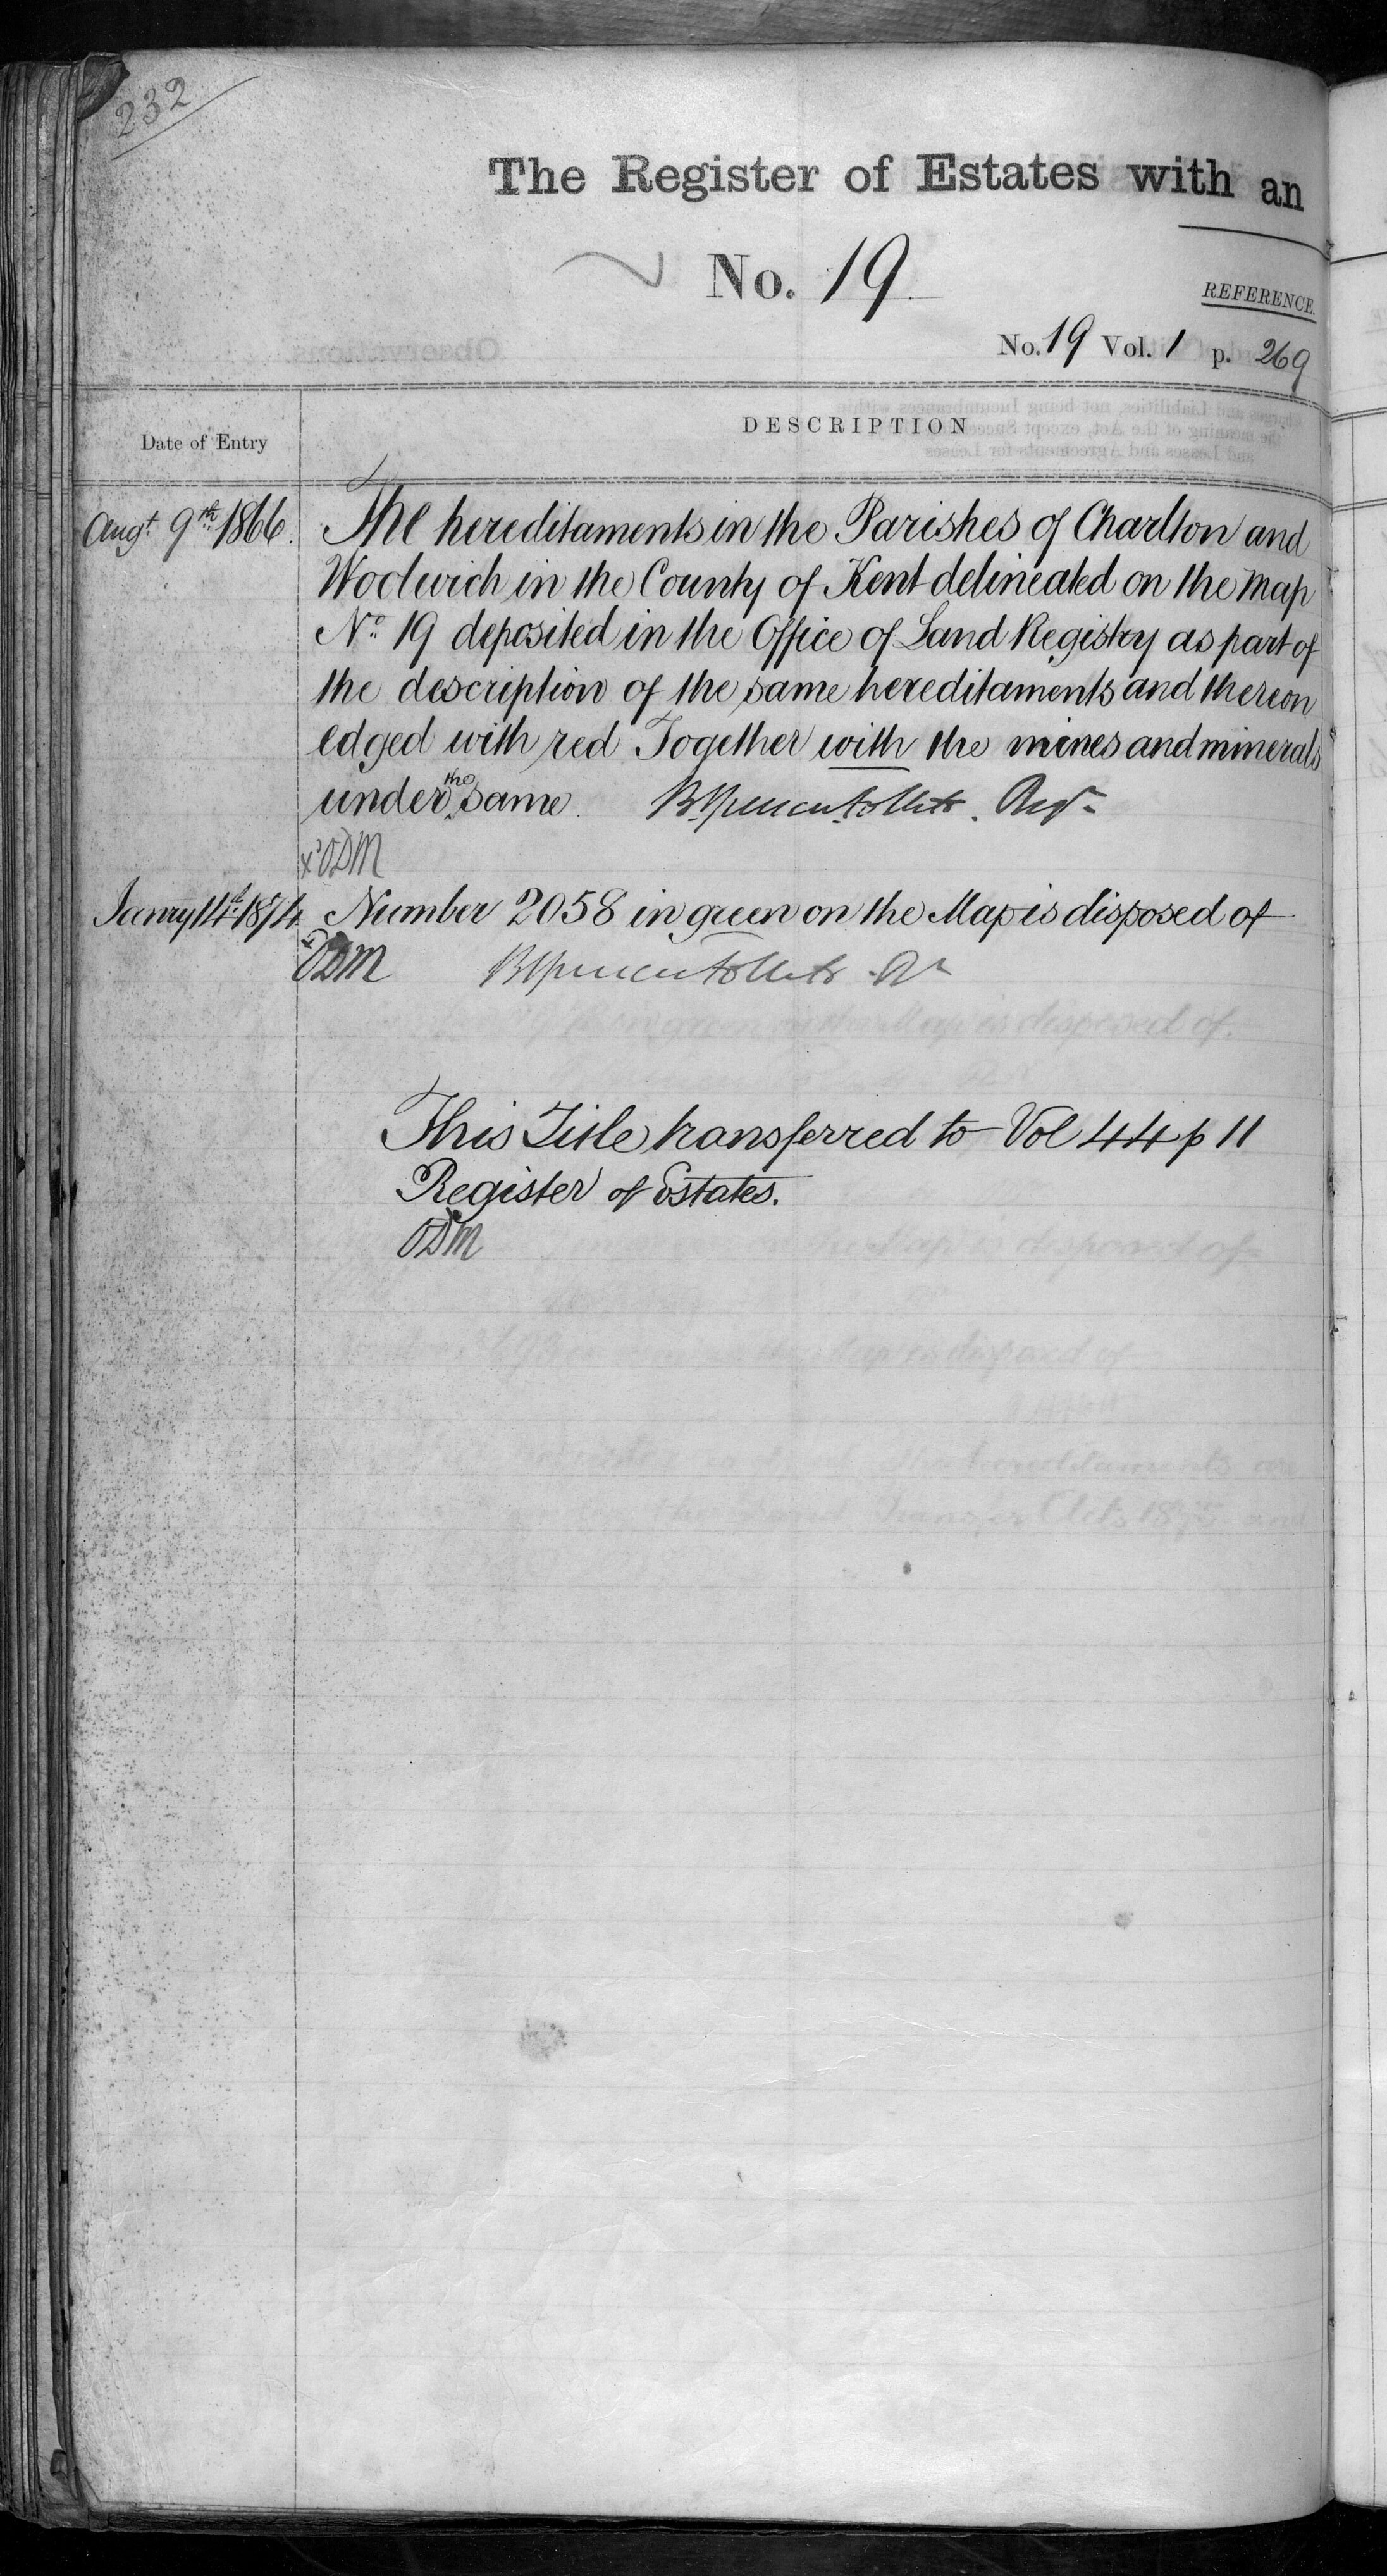 232
The Register of Estates with an
No. 19
REFERENCE.
No. 19 Vol. 1 p. 269
Date of Entry
DESCRIPTION
Augt. 9th 1866. The hereditaments in the Parishes of Charlton and
Woolwich in the County of Kent delineated on the Map
No. 19 deposited in the Office of Land Registry as part of
the description of the same hereditaments and thereon
edged with red Together with the mines and minerals
under the same. Regr.
ODM
Janry 14th 1874 Number 2058 in green on the Map is disposed of
ODM
This Title transferred to Vol 44 p 11
Register of Estates.
ODM